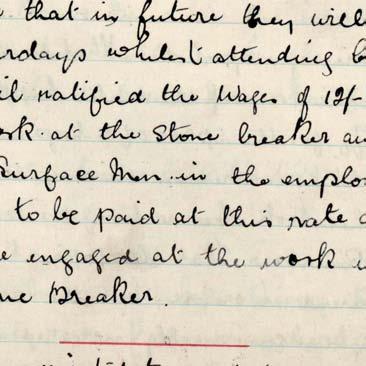 that in future they will
rdays whilst attending
il ratified the Wages of 12/-
ork at the Stone breaker
Surface Men in the emplo
to be paid at this rate
e engaged at the work
ne Breaker.